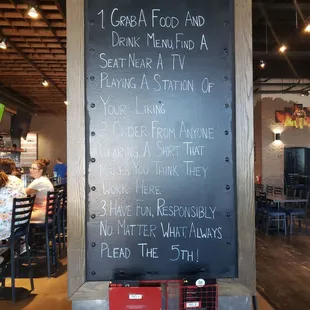 1 Grab A Food And
Drink Menu, Find A
Seat Near A TV
Playing A Station Of
Your Liking
2 Order From Anyone
Wearing A Shirt That
Makes You Think They
Work Here
3. Have Fun, Responsibly
No Matter What Always
Plead The 5th!